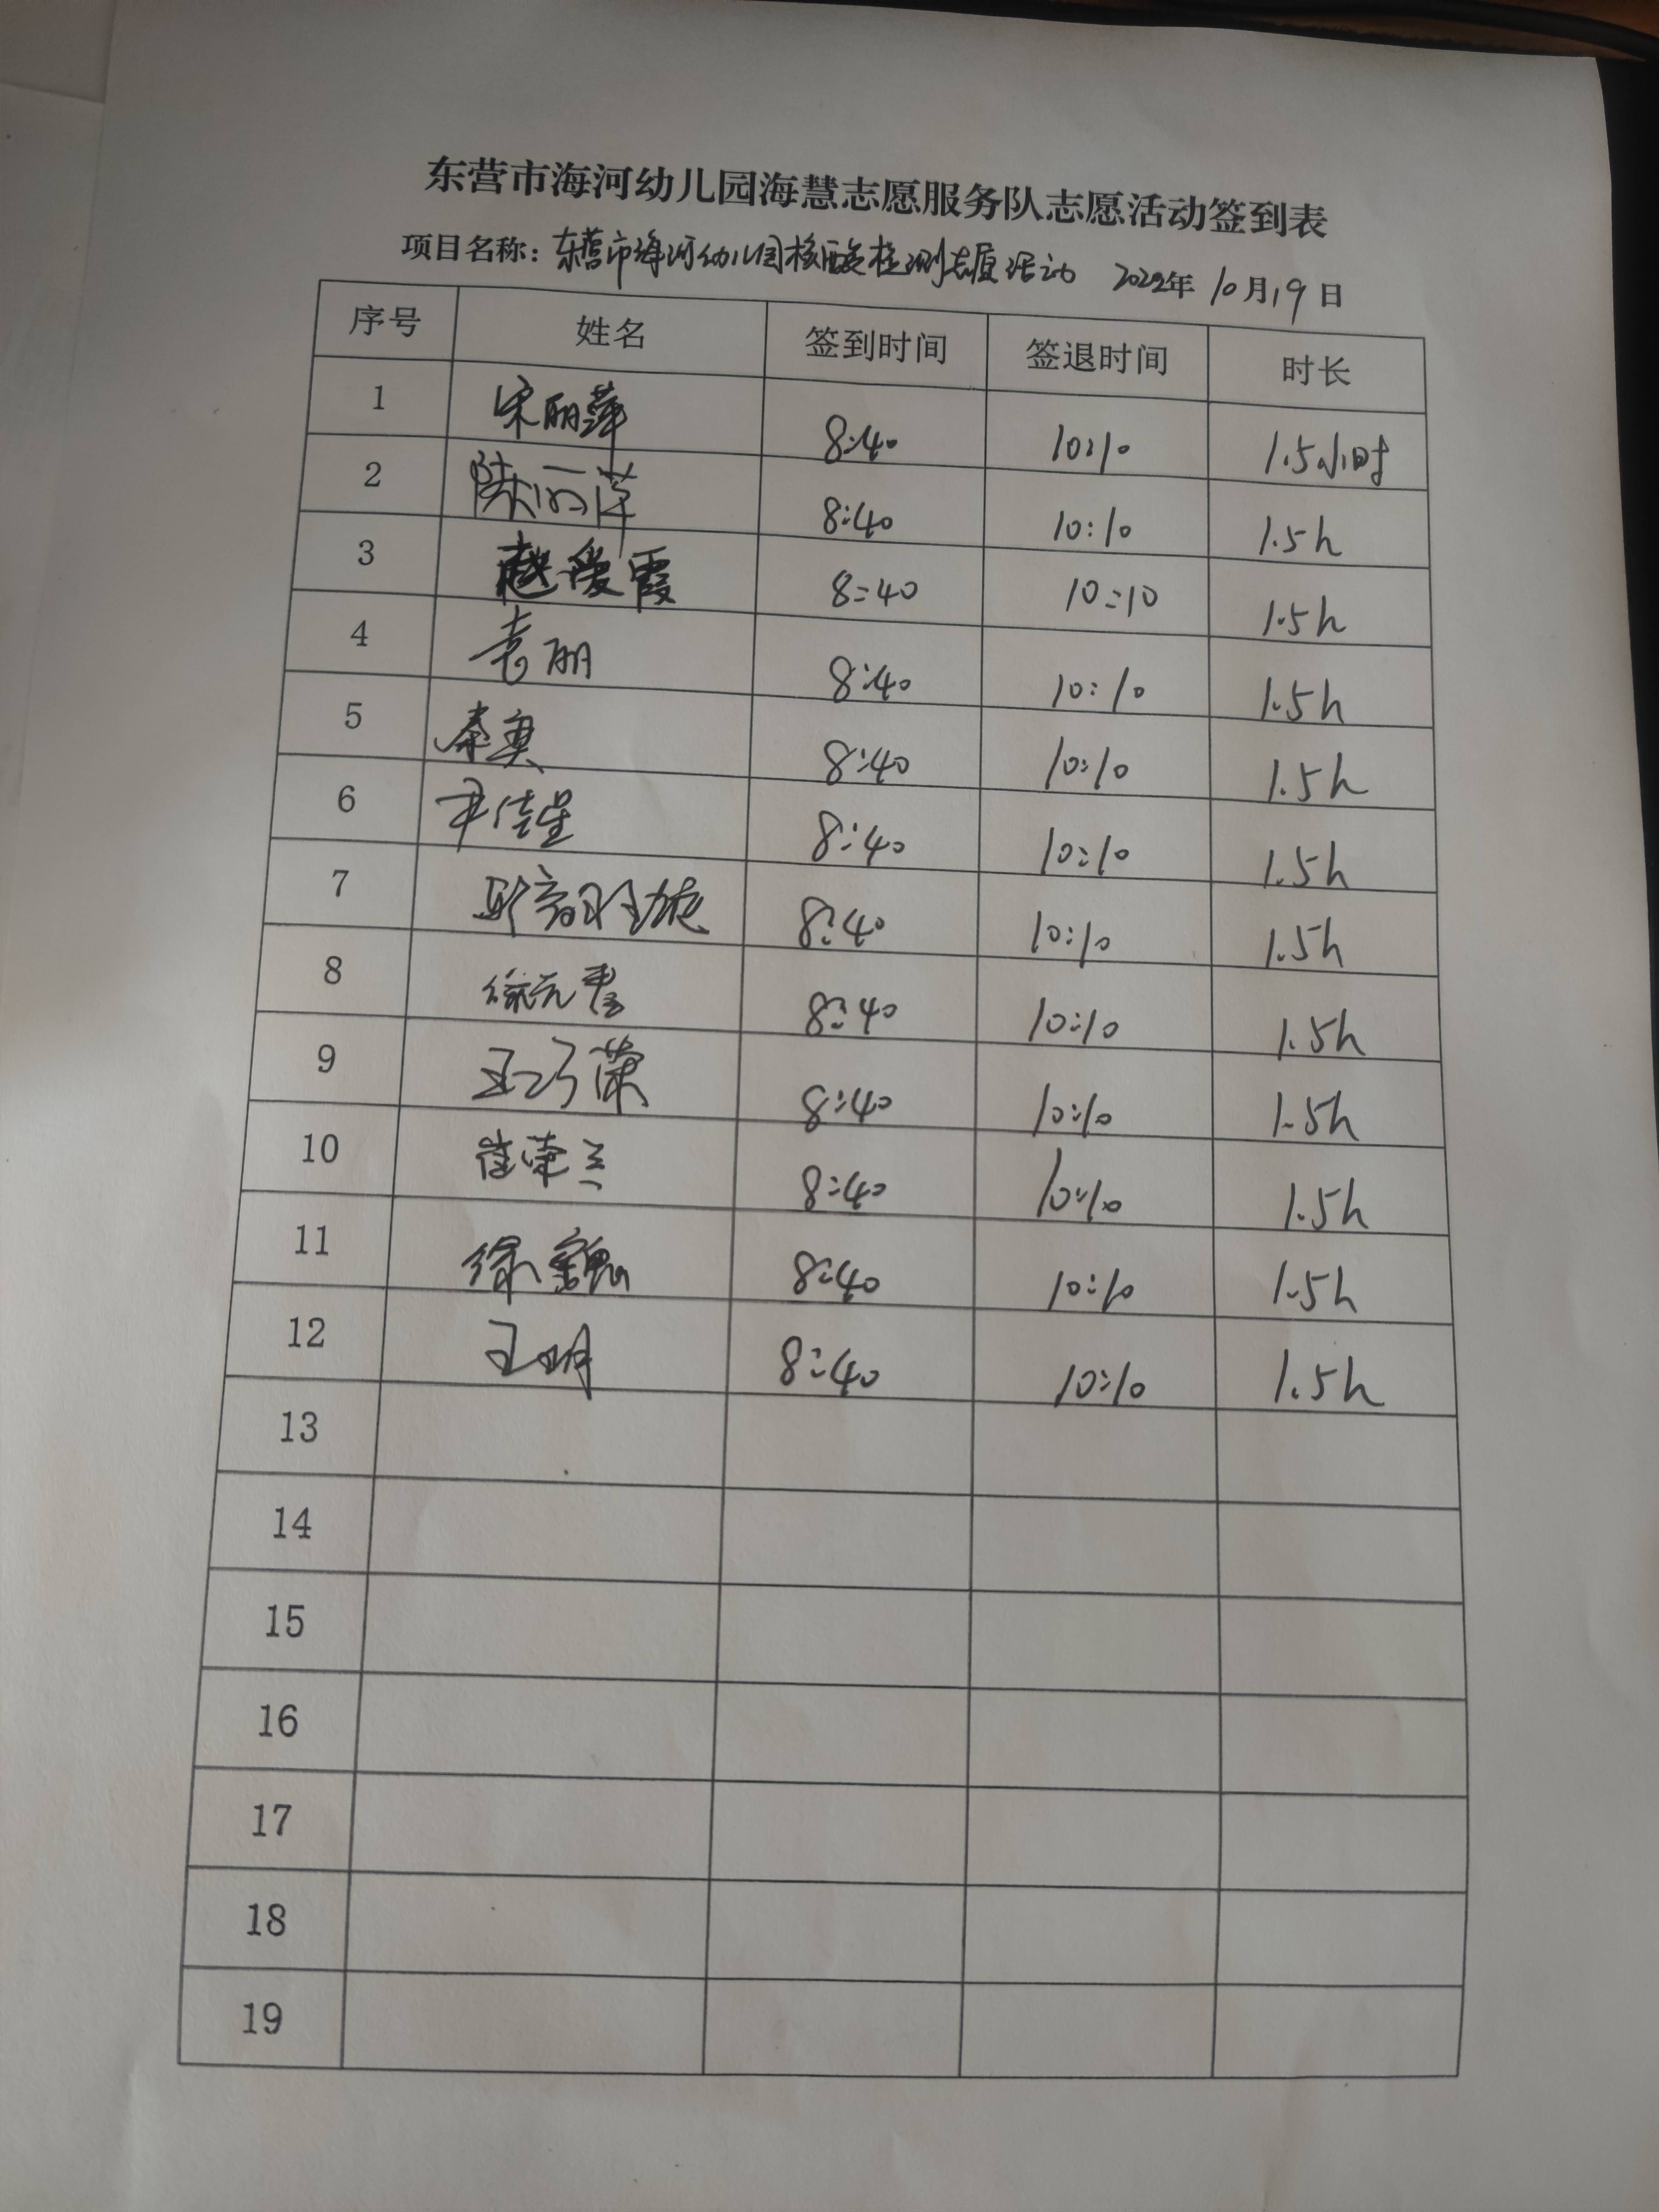 东营市海河幼儿园海慧志愿服务队志愿活动签到表
项目名称：东营市海河幼儿园核酸检测志愿活动 2022年10月19日
序号 姓名 签到时间 签退时间 时长
1 宋丽萍 8:40 10:10 1.5小时
2 陈丽萍 8:40 10:10 1.5h
3 赵爱霞 8:40 10:10 1.5h
4 袁丽 8:40 10:10 1.5h
5 秦奥 8:40 10:10 1.5h
6 尹佳星 8:40 10:10 1.5h
7 8:40 10:10 1.5h
8 8:40 10:10 1.5h
9 王巧荣 8:40 10:10 1.5h
10 崔荣兰 8:40 10:10 1.5h
11 徐 8:40 10:10 1.5h
12 王明 8:40 10:10 1.5h
13
14
15
16
17
18
19